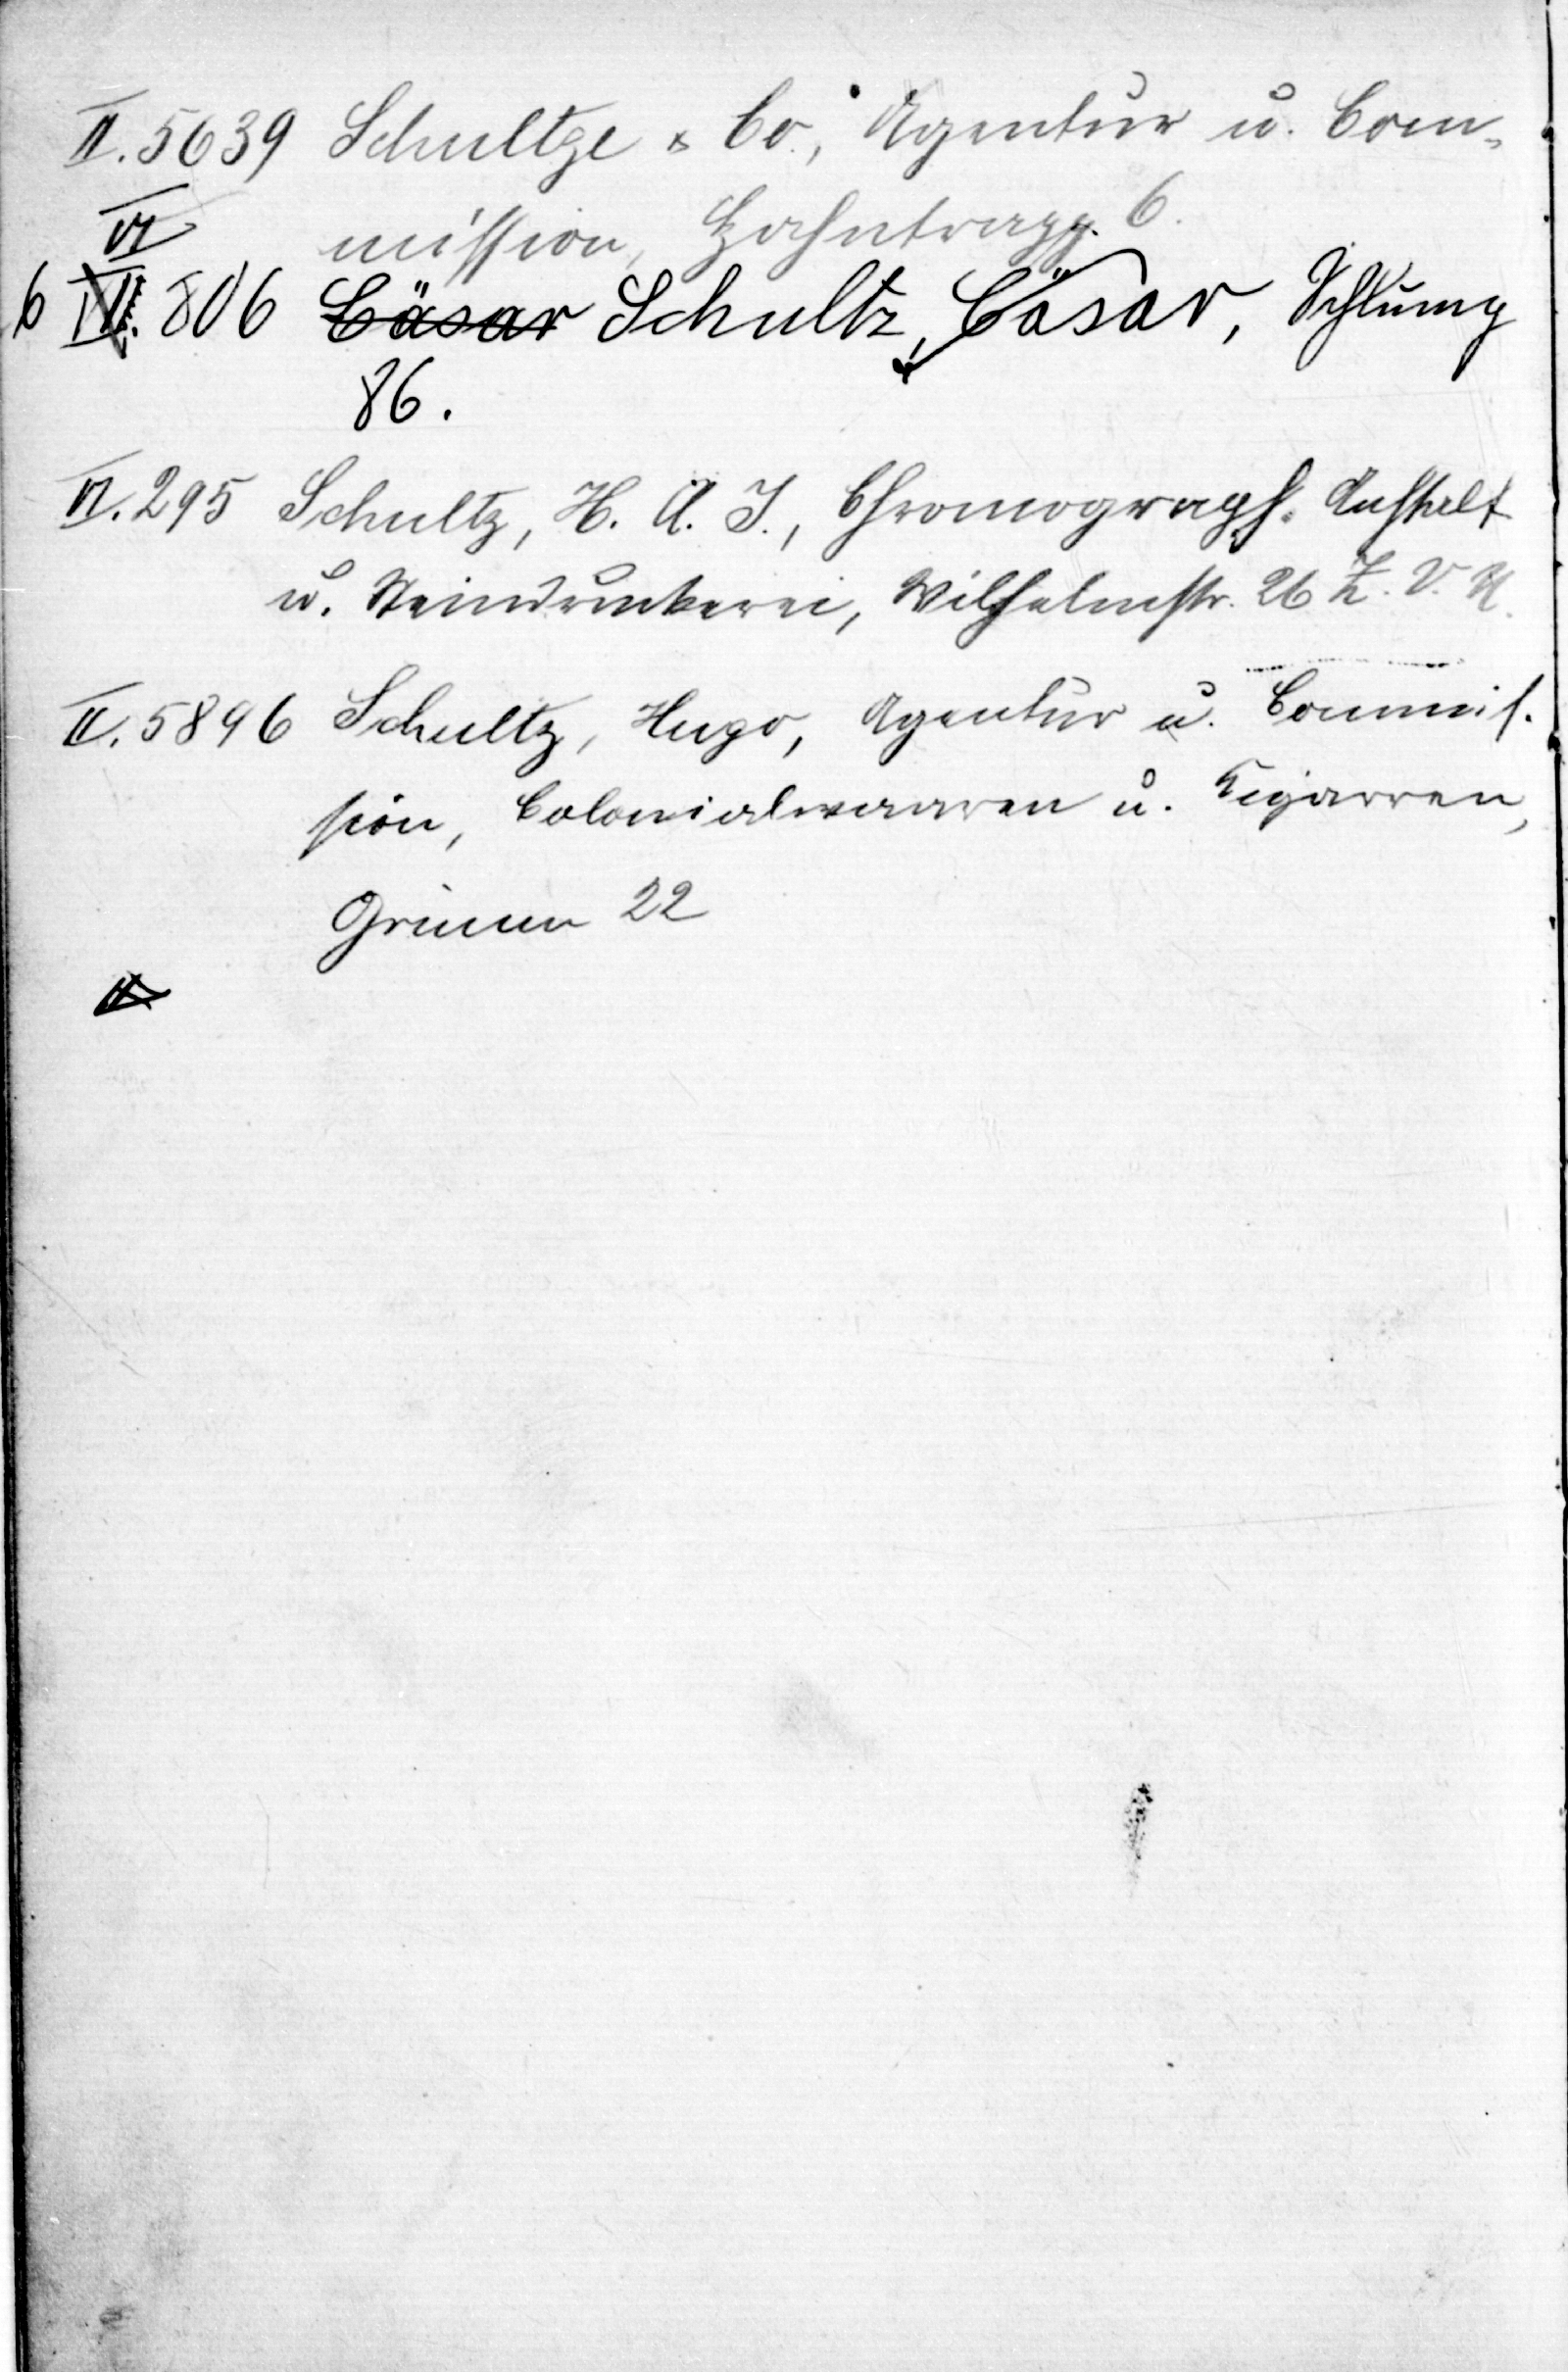 II. 5639 Schultze & Co., Agentur u. Com-
mission, Hahntrapp. 6.
VI
6 VII. 806 Cäsar Schultz, Cäsar, Schlump
86.
VI. 295 Schultz, H. A. J., Chromograph. Anstalt
u. Steindruckerei, Wilhelmstr. 26 Z. V. U.
II. 5896 Schultz, Hugo, Agentur u. Commis-
sion, Colonialwaaren u. Cigarren,
Grimm 22